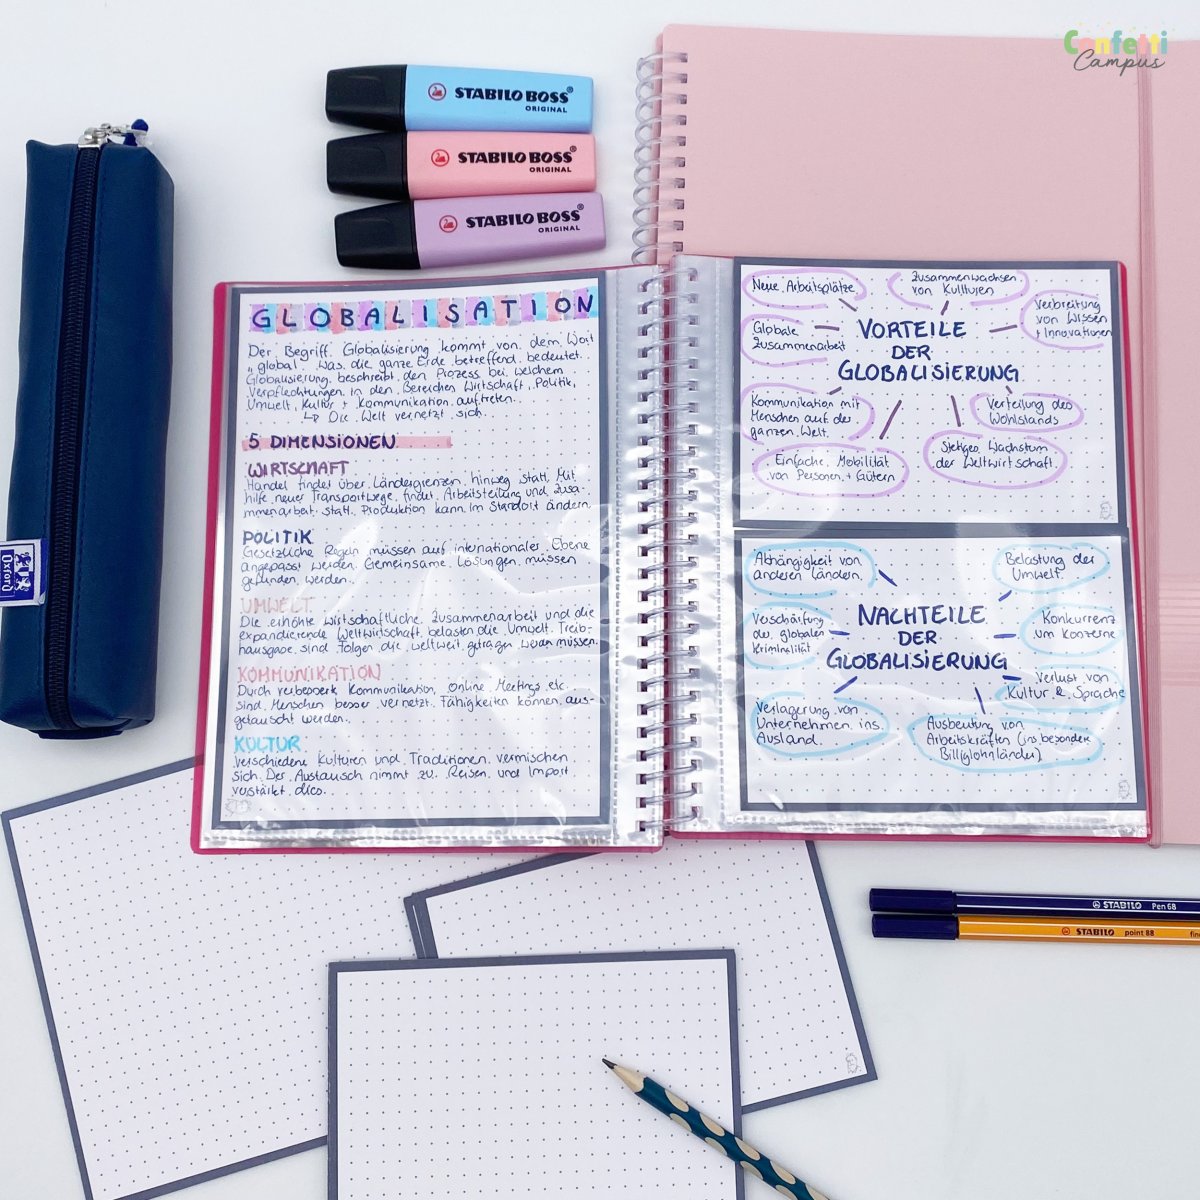 Confetti
Campus
STABILO BOSS®
ORIGINAL
STABILO BOSS®
ORIGINAL
STABILO BOSS®
ORIGINAL
Oxford
GLOBALISATION
Der Begriff Globalisierung kommt von dem Wort
„global". Was die ganze Erde betreffend bedeutet.
Globalisierung beschreibt den Prozess bei welchem
Verpflechtungen in den Bereichen Wirtschaft, Politik,
Umwelt, Kultur + Kommunikation auftreten.
↳ Die Welt vernetzt sich.
5 DIMENSIONEN
WIRTSCHAFT
Handel findet über Ländergrenzen hinweg statt. Mit
hilfe neuer Transportwege findet Arbeitsteilung und Zusa-
mmenarbeit statt. Produktion kann im Standort ändern.
POLITIK
Gesetzliche Regeln müssen auf internationaler Ebene
angepasst werden. Gemeinsame Lösungen müssen
gefunden werden.
UMWELT
Die erhöhte wirtschaftliche Zusammenarbeit und die
expandierende Weltwirtschaft belasten die Umwelt. Treib-
hausgase sind Folgen die weltweit getragen werden müssen.
KOMMUNIKATION
Durch verbesserte Kommunikation, Online Meetings etc.
sind Menschen besser vernetzt. Fähigkeiten können aus-
getauscht werden.
KULTUR
Verschiedene Kulturen und Traditionen vermischen
sich. Der Austausch nimmt zu. Reisen und Import
verstärkt dies.
Neue Arbeitsplätze
Zusammenwachsen
von Kulturen
Verbreitung
von Wissen
+ Innovationen
Globale
Zusammenarbeit
VORTEILE
DER
GLOBALISIERUNG
Kommunikation mit
Menschen auf der
ganzen Welt.
Verteilung des
Wohlstands
Einfache Mobilität
von Personen + Gütern
Stetiges Wachstum
der Weltwirtschaft.
Abhängigkeit von
anderen Ländern.
Belastung der
Umwelt.
Verschärfung
der globalen
Kriminalität
NACHTEILE
DER
GLOBALISIERUNG
Konkurrenz
um Konzerne
Verlust von
Kultur & Sprache
Verlagerung von
Unternehmen ins
Ausland.
Ausbeutung von
Arbeitskräften (insbesondere
Billiglohnländer)
STABILO Pen 68
STABILO point 88 fine